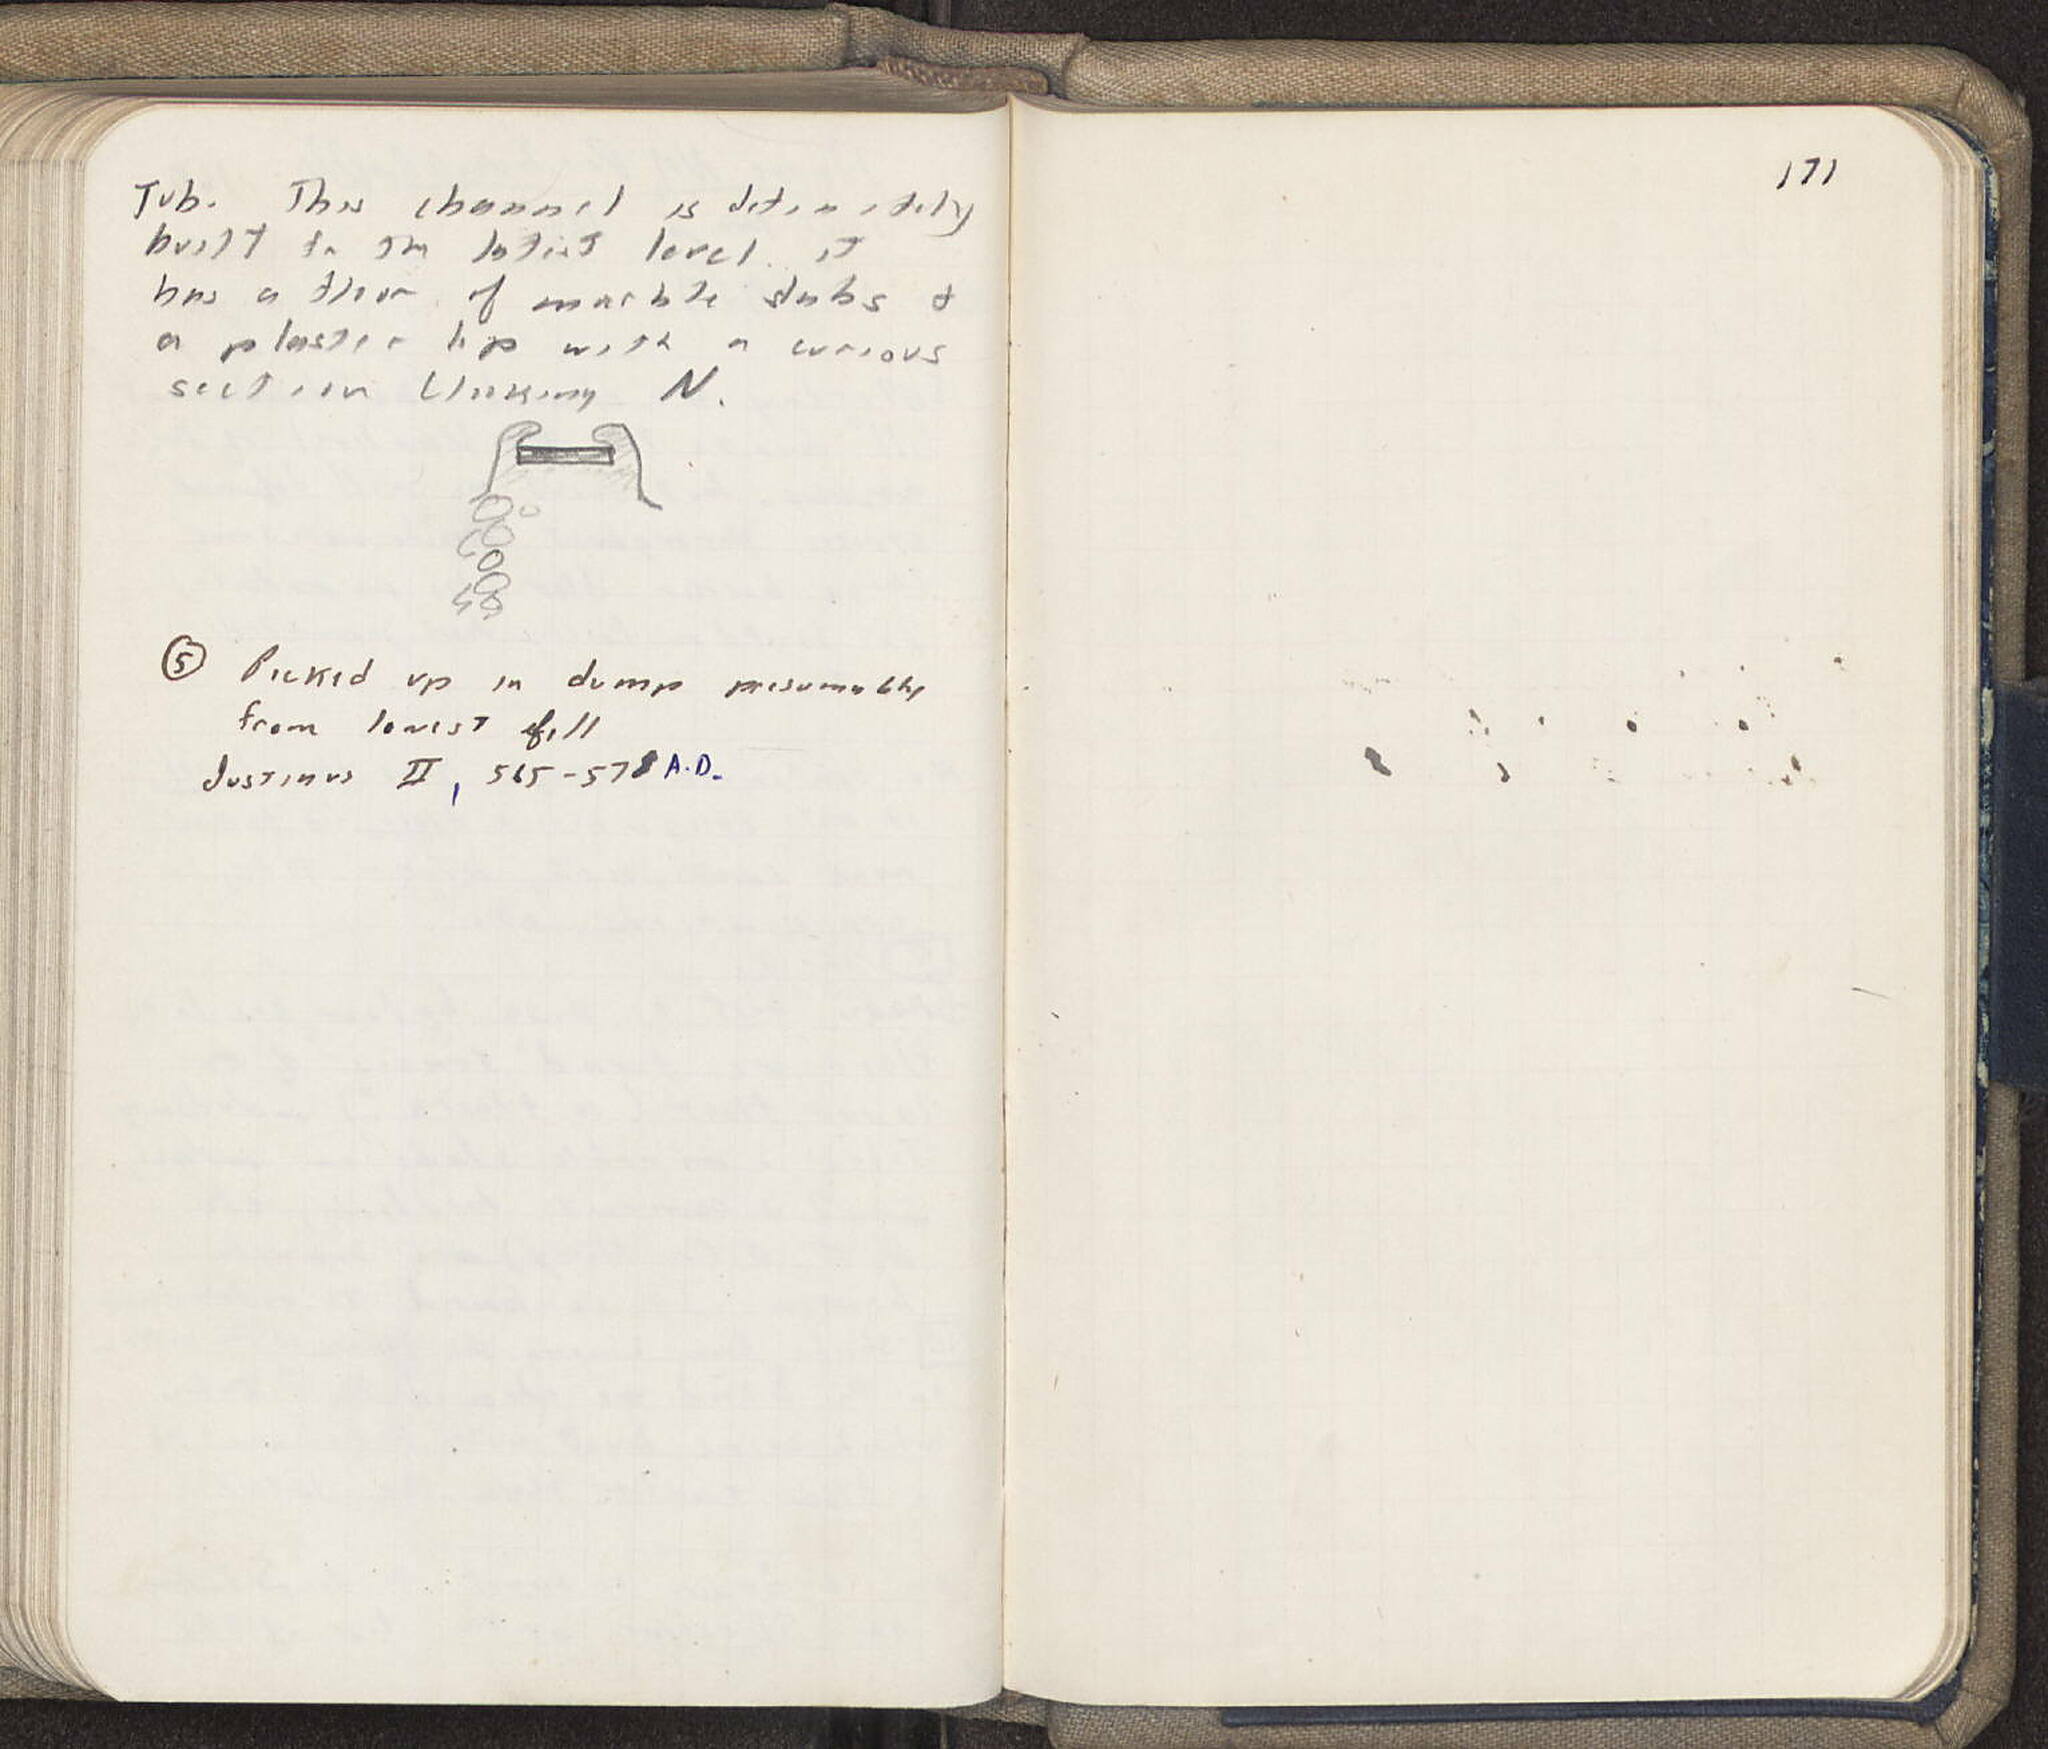 Tub. This channel is definitely
built for the latest level. it
has a floor of marble slabs &
a plaster lip with a curious
section (looking N.
⑤ Picked up in dump presumably
from lowest fill
Justinus II, 565-578 A.D.
171